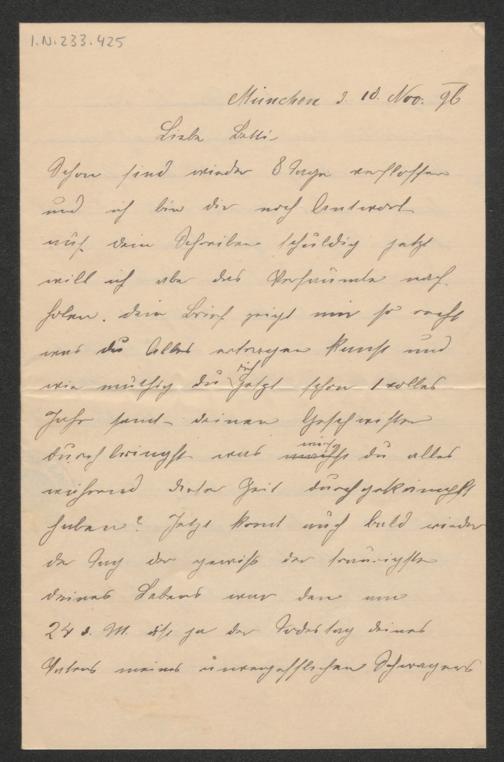 I.N. 233.425
München d. 10. Nov. 96
Liebe Betti
Schon sind wieder 8 Tage verflossen
und ich bin dir noch Antwort
auf dein Schreiben schuldig jetzt
will ich aber das Versäumte nach
holen. dein Brief zeigt mir so recht
was du Alles ertragen kanst und
wie muthig du dich jetzt schon 1 volles
Jahr samt deinen Geschwister
durchbringst was mußt du alles
während dieser Zeit durchgekämpft
haben? Jetzt komt auch bald wieder
der Tag der gewiß der traurigste
deines Lebens war den am
24 d. M. ist ja der Todestag deines
Vaters meines unvergesslichen Schwagers